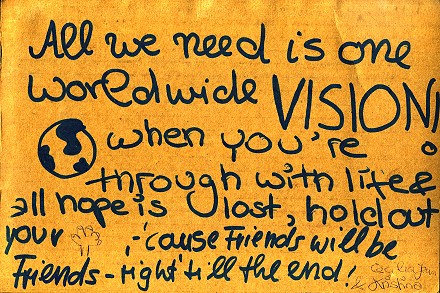 All we need is one
worldwide VISION!
when you're
through with life &
all hope is lost, hold out
your -'cause Friends will be
Friends - right 'till the end!